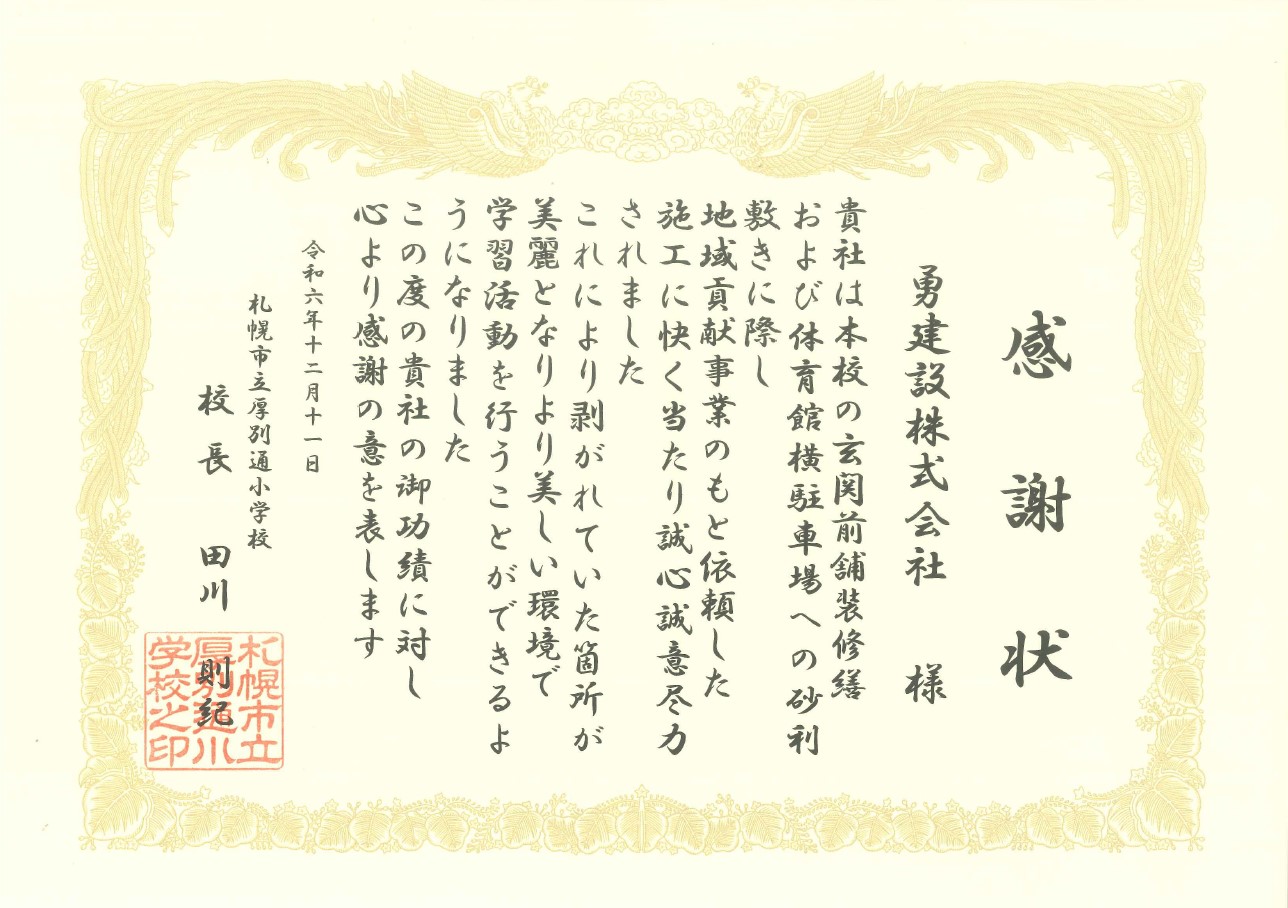 感謝状
勇建設株式会社 様
貴社は本校の玄関前舗装修繕
および体育館横駐車場への砂利
敷きに際し
地域貢献事業のもと依頼した
施工に快く当たり誠心誠意尽力
されました
これにより剥がれていた箇所が
美麗となりより美しい環境で
学習活動を行うことができるよ
うになりました
この度の貴社の御功績に対し
心より感謝の意を表します
令和六年十二月十一日
札幌市立厚別通小学校
校長 田川 則紀
札幌市立
厚別通小
学校之印